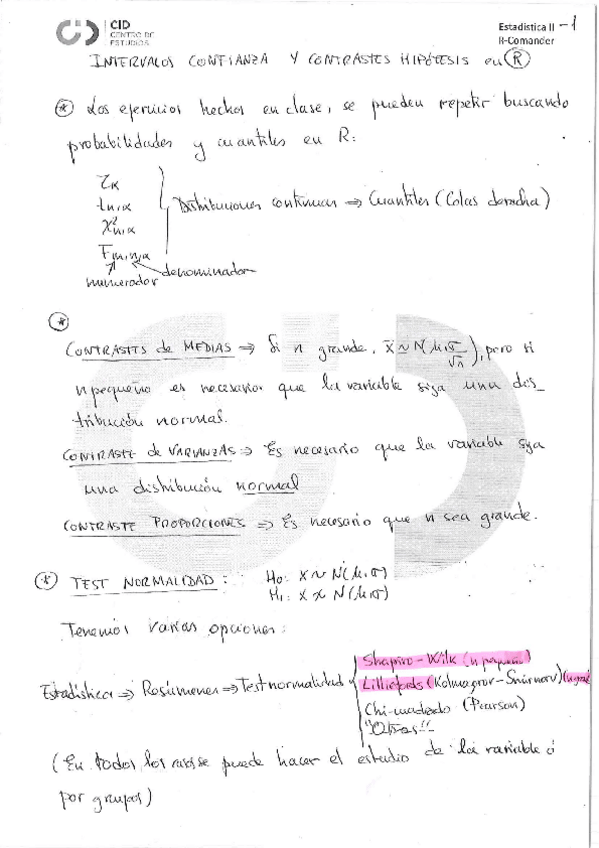 CID
CENTRO DE
ESTUDIOS
Estadística II - 1
R-Comander
INTERVALOS CONFIANZA Y CONTRASTES HIPÓTESIS en R
* Los ejercicios hechos en clase, se pueden repetir buscando
probabilidades y cuantiles en R:
Zα
tn,α
χ²n,α
Fm,n,α
Distribuciones continuas ⇒ Cuantiles (Colas derecha)
numerador denominador
*
CONTRASTES de MEDIAS ⇒ Si n grande, x̄ ≈ N(μ, σ/√n), pero si
n pequeño es necesario que la variable siga una dis_
tribución normal.
CONTRASTE de VARIANZAS ⇒ Es necesario que la variable siga
una distribución normal
CONTRASTE PROPORCIONES ⇒ Es necesario que n sea grande.
* TEST NORMALIDAD: H₀: X ~ N(μ,σ)
H₁: X ≁ N(μ,σ)
Tenemos varias opciones:
Shapiro-Wilk (n pequeño)
Estadísticos ⇒ Resúmenes ⇒ Test normalidad
Lilliefords (Kolmogrov-Smirnorv)
Chi-cuadrado (Pearson)
"Otros!!
(En todos los casos se puede hacer el estudio de la variable ó
por grupos)